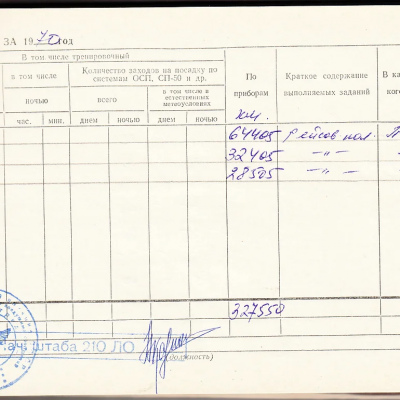 ЗА 1970 год
В том числе тренировочный
в том числе
Количество заходов на посадку по системам ОСП, СП-50 и др.
По приборам
Краткое содержание выполняемых заданий
В ка
кого
ночью
всего
в том числе в естественных метеоусловиях
час. мин. днем ночью днем ночью
км.
64405 Рейсов пол. П
32405 -"-
28505 -"-
327550
нач штаба 210 ЛО
(должность)